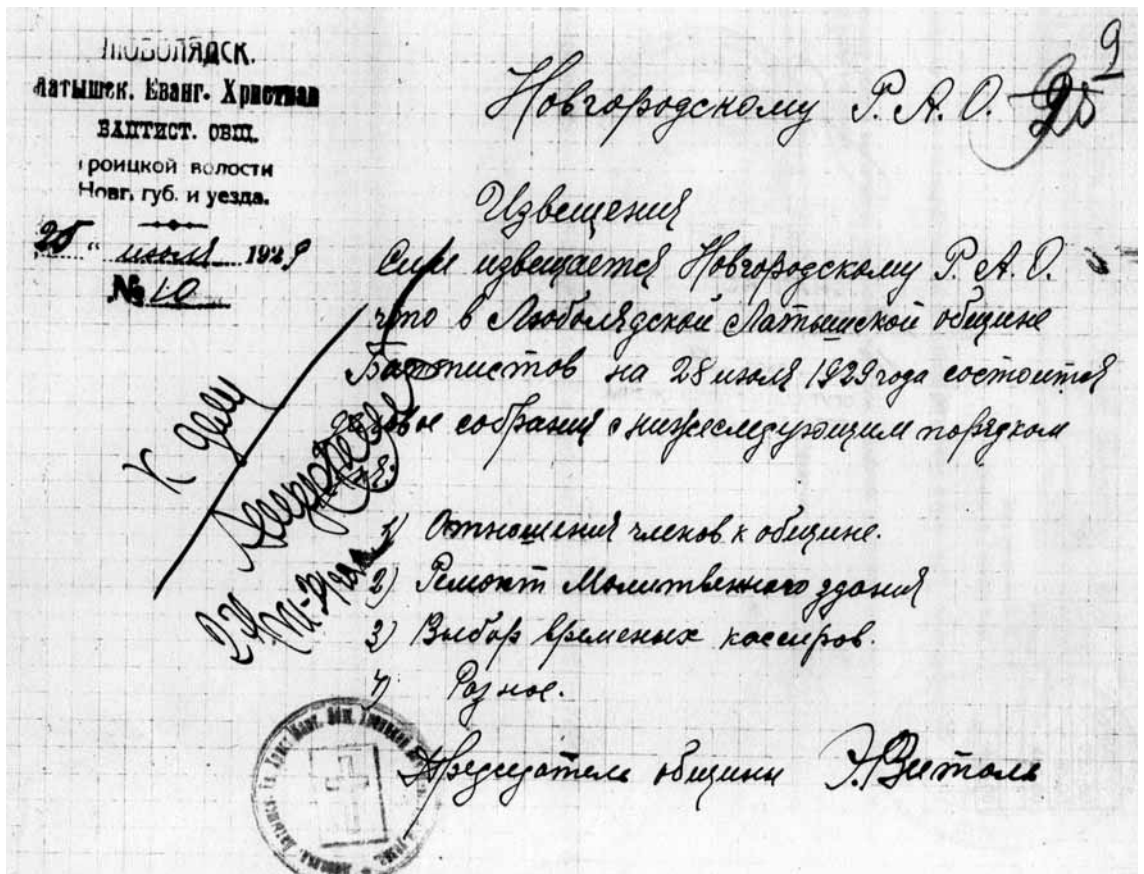 ЛЮБОЛЯДСК.
Латышск. Еванг. Христиан
БАПТИСТ. ОБЩ.
Троицкой волости
Новг. губ. и уезда.
25 " июля 1929
№ 10
9
Новгородскому Р. А. О.
Извещения
Сим извещается Новгородскому Р. А. О.
что в Люболядской Латышской общине
Баптистов на 28 июля 1929 года состоится
деловое собрания с нижеследующим порядком
дня:
1) Отношения членов к общине.
2) Ремонт Молитвенного здания
3) Выбор временых кассиров.
4) Разное.
Председатель общины Э. Витоль
К делу